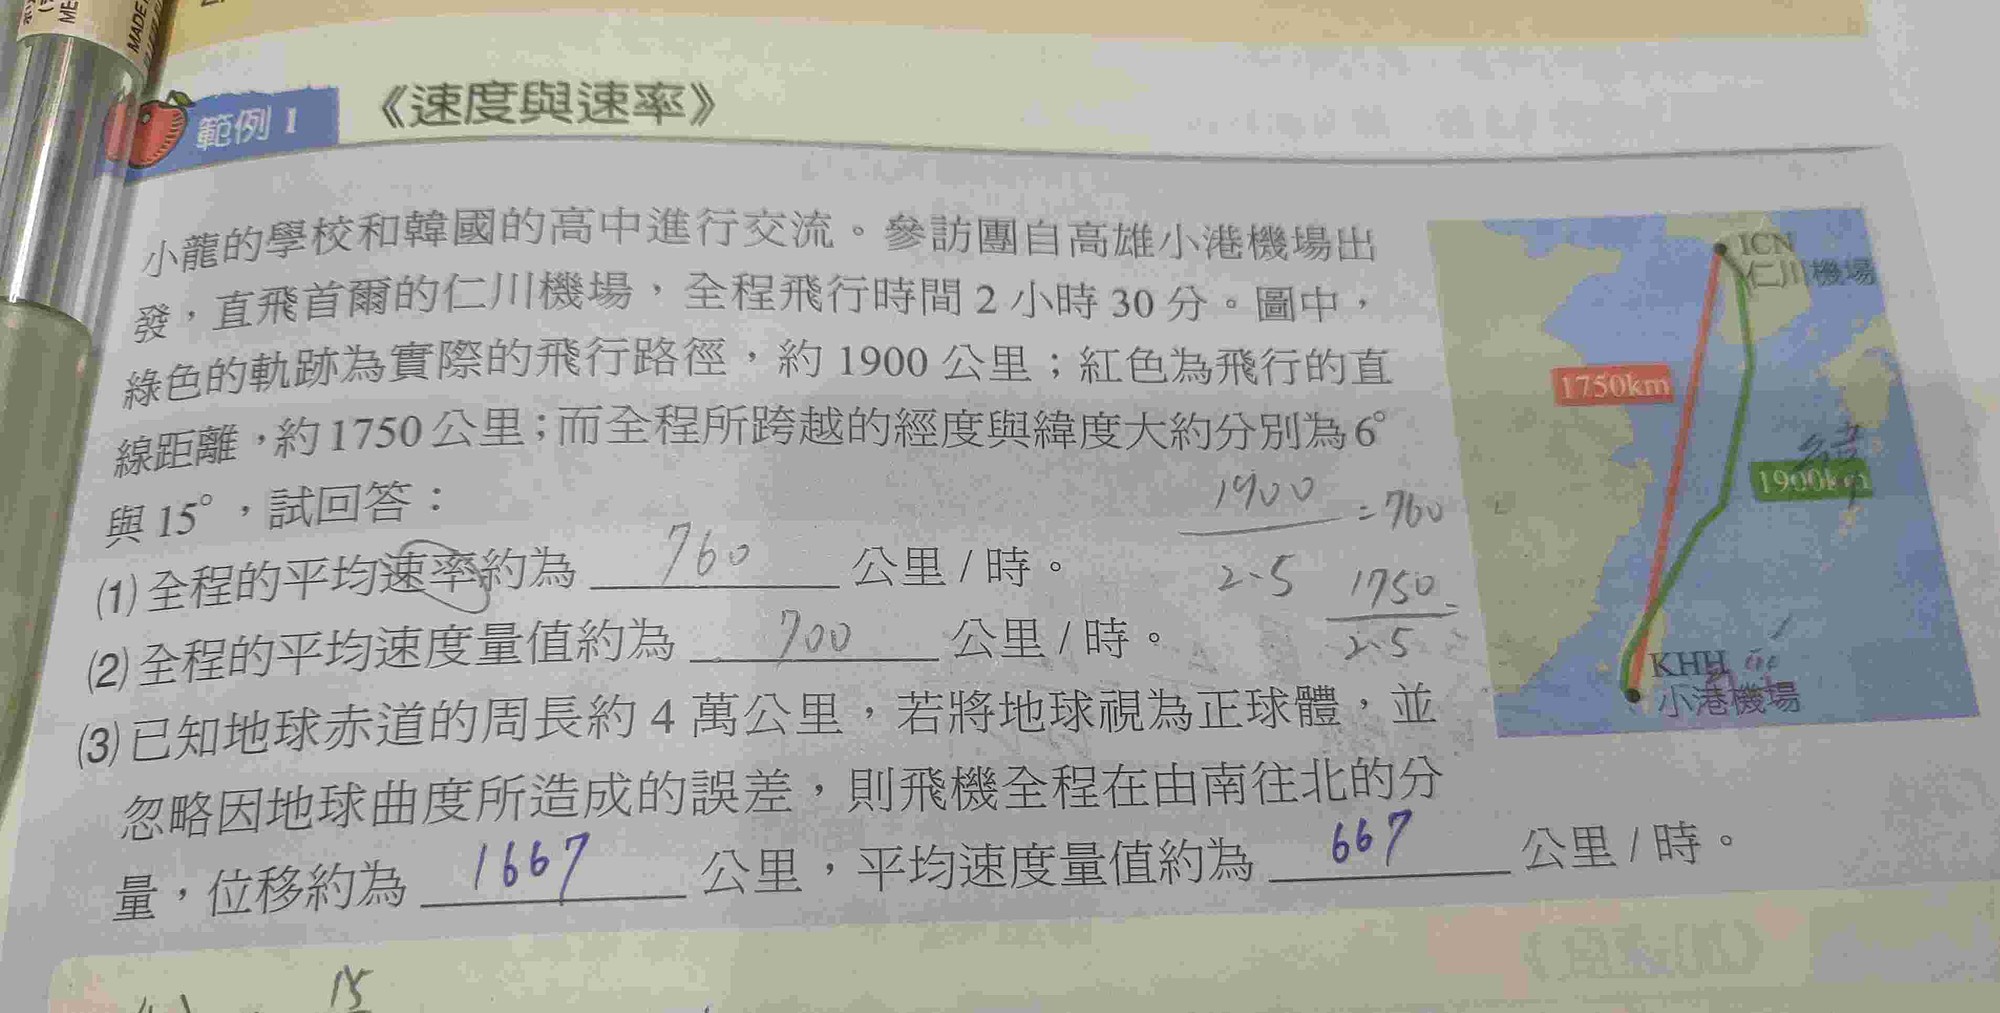 ME
MADE
範例 1 《速度與速率》
小龍的學校和韓國的高中進行交流。參訪團自高雄小港機場出
發，直飛首爾的仁川機場，全程飛行時間 2 小時 30 分。圖中，
綠色的軌跡為實際的飛行路徑，約 1900 公里；紅色為飛行的直
線距離，約 1750 公里；而全程所跨越的經度與緯度大約分別為 6°
與 15°，試回答：
(1) 全程的平均速率約為 760 公里 / 時。
(2) 全程的平均速度量值約為 700 公里 / 時。
(3) 已知地球赤道的周長約 4 萬公里，若將地球視為正球體，並
忽略因地球曲度所造成的誤差，則飛機全程在由南往北的分
量，位移約為 1667 公里，平均速度量值約為 667 公里 / 時。
1900
= 760
2.5
1750
2.5
ICN
仁川機場
1750km
1900km
KHH
小港機場
15